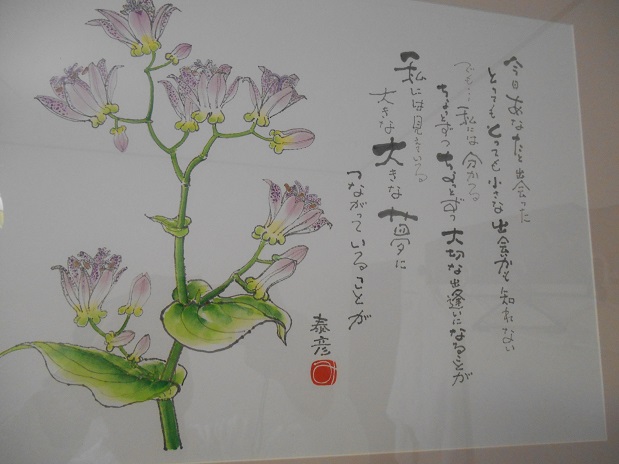 今日あなたと出会った
とってもとっても小さな出会かも知れない
でも…私には分かる
ちょっとずつちょっとずつ大切な出逢いになることが
私には見えている
大きな大きな夢に
つながっていることが
泰彦